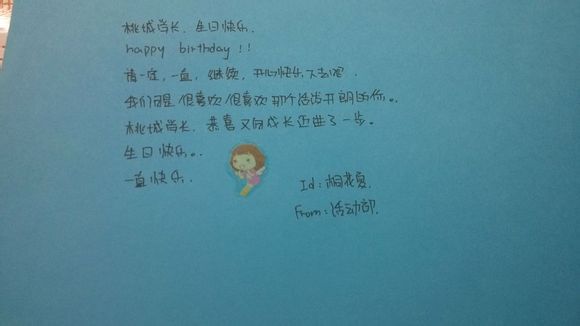 桃城学长,生日快乐.
happy birthday !!
请一定,一直,继续,开心快乐下去吧.
我们都是很喜欢很喜欢那个活泼开朗的你。.
桃城学长,恭喜又向成长迈进了一步。
生日快乐。.
一直快乐.
Id:桐花夏.
From:活动部.